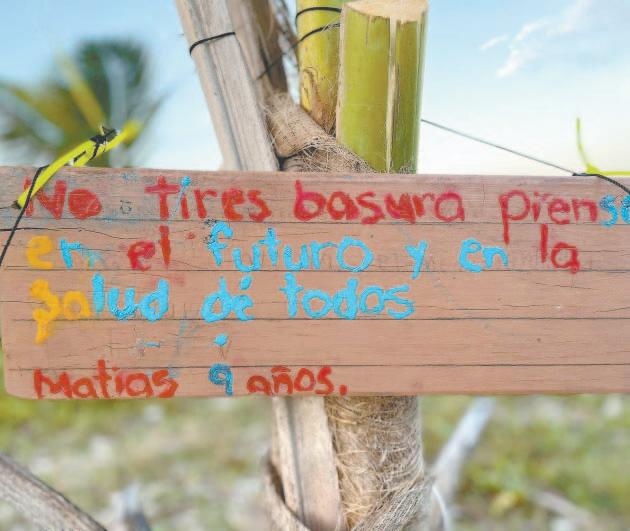 No tires basura piense
en el futuro y en la
salud dé todos
Matias 9 años.